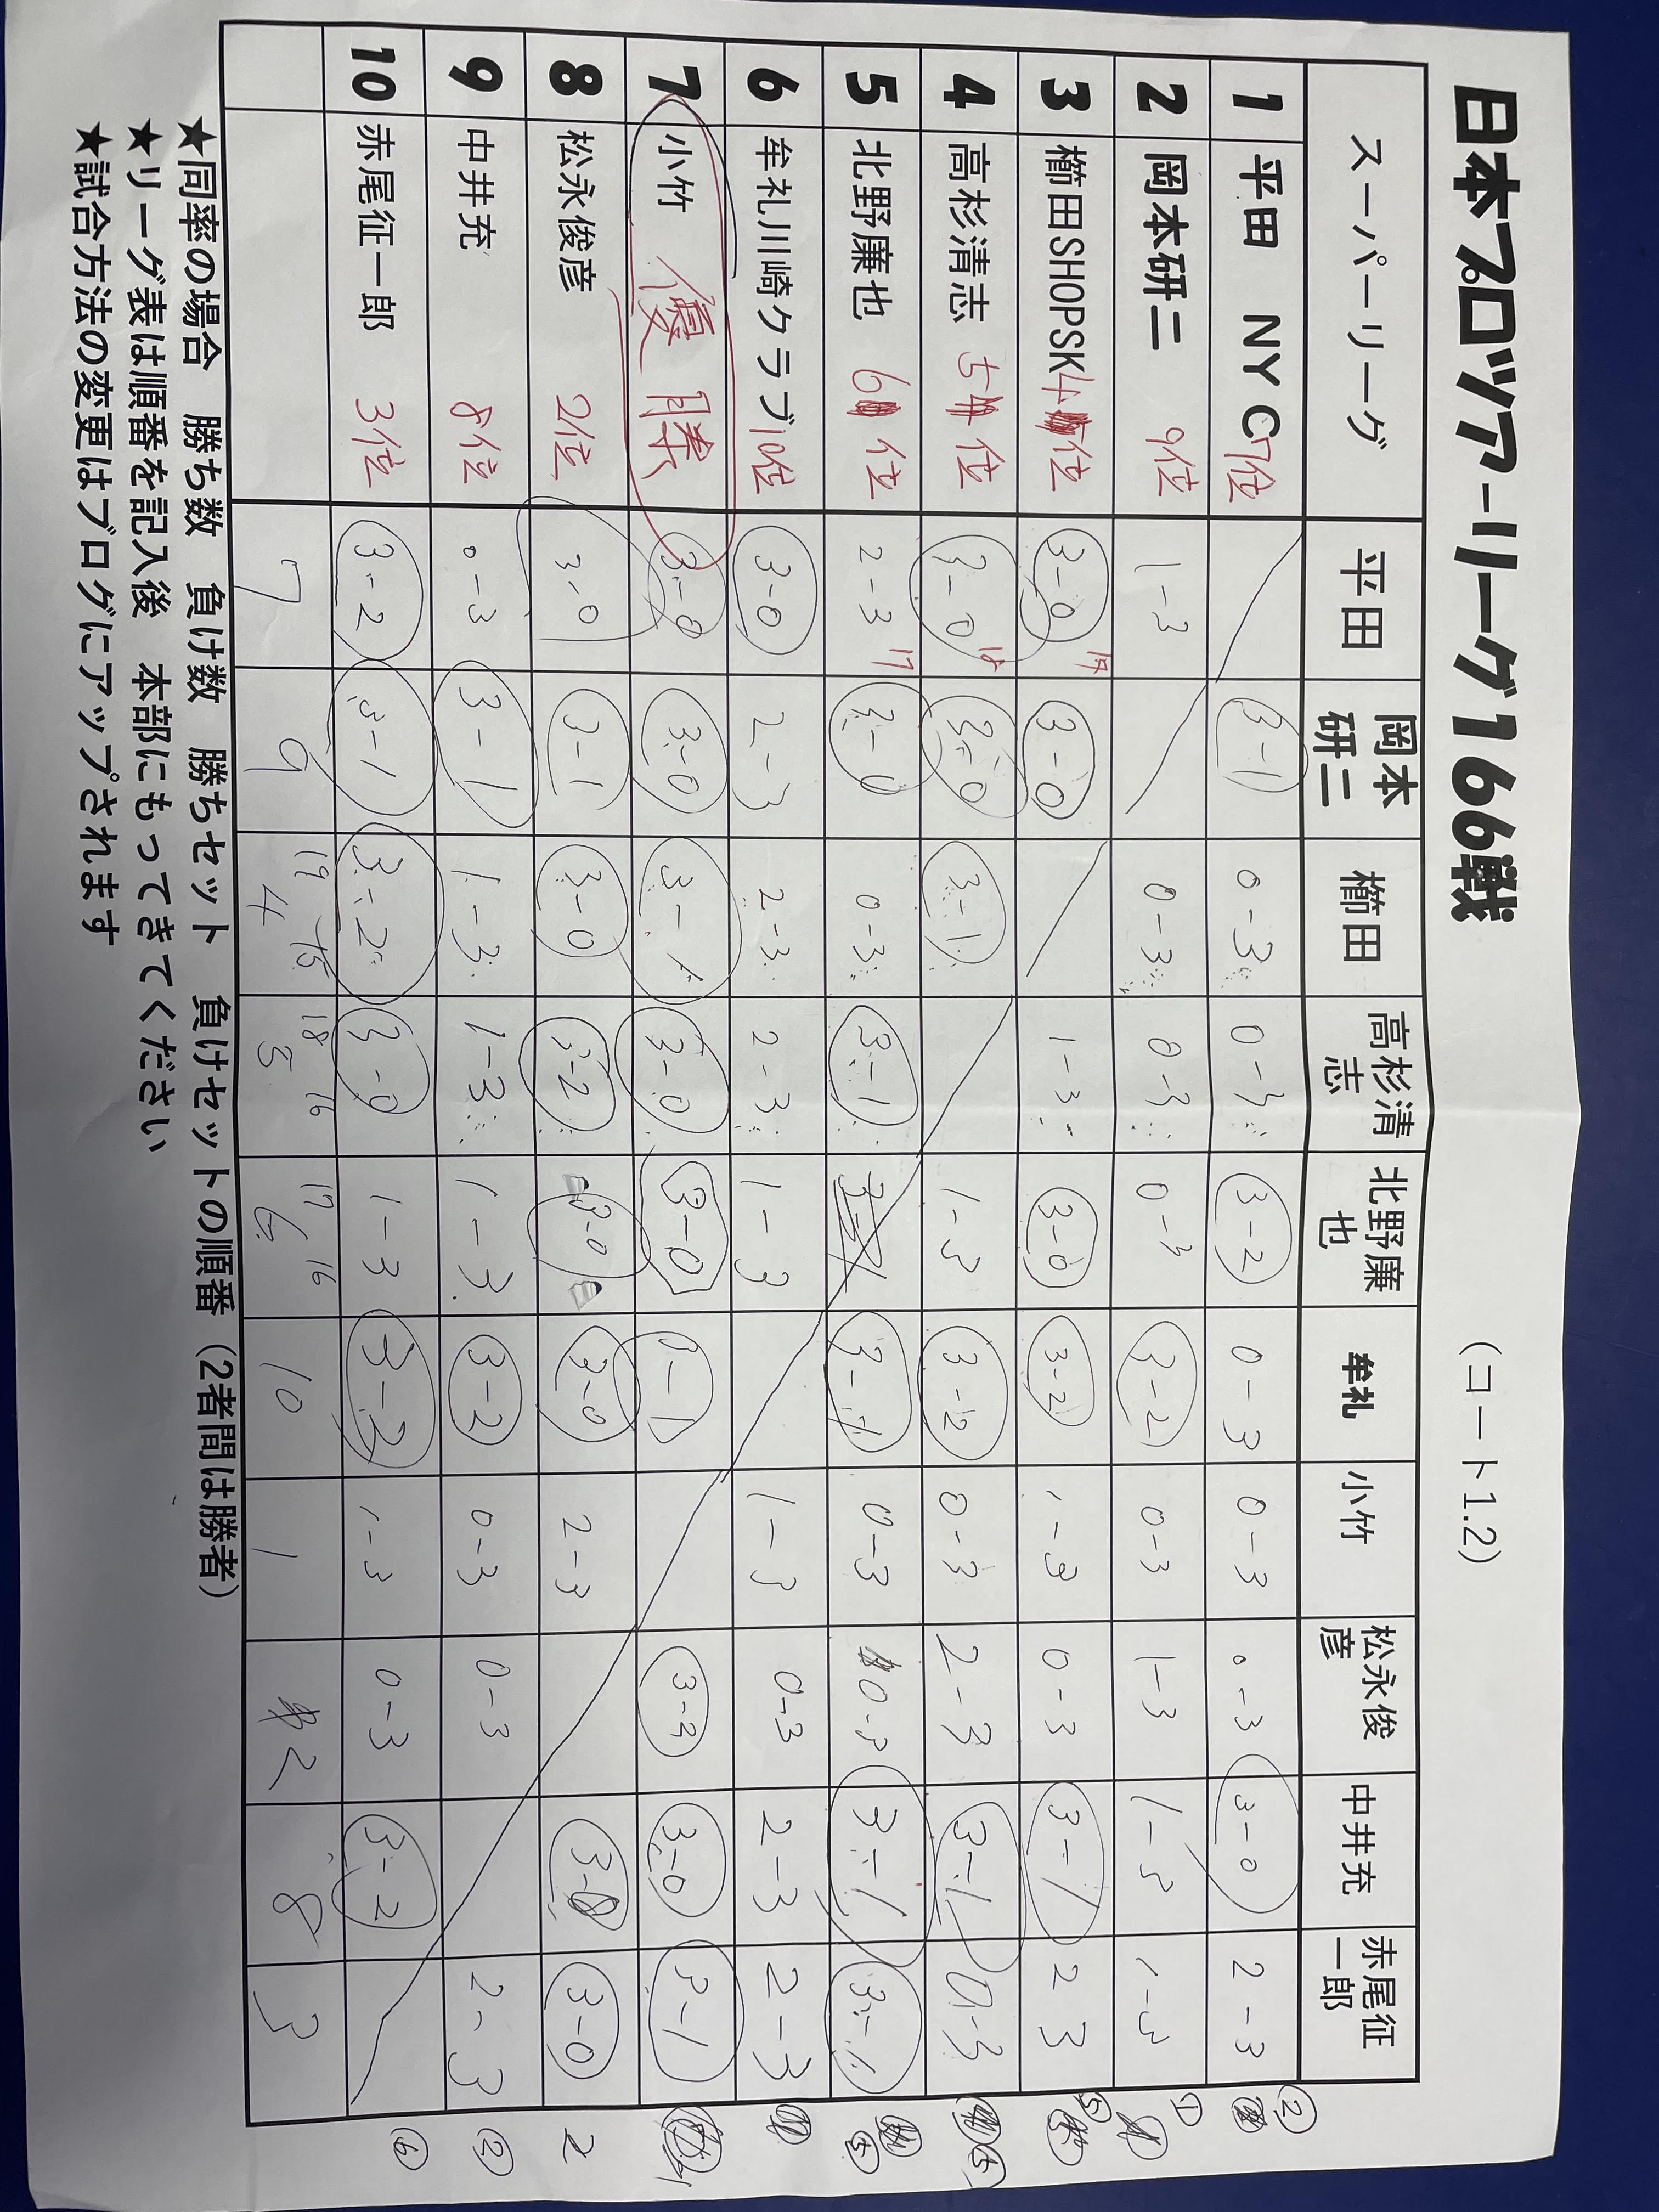 日本プロツアーリーグ166戦
(コート1.2)
スーパーリーグ 平田 岡本研二 櫛田 高杉清志 北野廉也 牟礼 小竹 松永俊彦 中井充 赤尾征一郎
1 平田 NYC 7位 3-1 0-3 0-3 3-2 0-3 0-3 0-3 3-0 2-3 ②
2 岡本研二 9位 1-3 0-3 0-3 0-3 3-2 0-3 1-3 1-3 1-3 ①
3 櫛田SHOPSK 4位 3-0 19 3-0 1-3 3-0 3-2 1-3 0-3 3-1 2 3 ⑤
4 高杉清志 5位 3-0 18 3-0 3-1 1-3 3-2 0-3 2-3 3-1 0-3 ⑤
5 北野廉也 6位 2-3 17 3-0 0-3 3-1 3-1 0-3 0-3 3-1 3-1 ⑤
6 牟礼川崎クラブ 10位 3-0 2-3 2-3 2-3 1-3 1-3 0-3 2-3 2-3 ①
7 小竹 優勝 3-0 3-0 3-1 3-0 3-0 3-2 3-0 3-1
8 松永俊彦 2位 3-0 3-1 3-0 3-2 3-0 3-0 2-3 3-0 3-0 2
9 中井充 8位 0-3 3-1 1-3 1-3 1-3 3-2 0-3 0-3 2-3 ②
10 赤尾征一郎 3位 3-2 3-1 3-2 3-0 1-3 3-2 1-3 0-3 3-2 ⑥
7 9 19 4 18 5 16 17 6 16 10 1 2 8 3
★同率の場合 勝ち数 負け数 勝ちセット 負けセットの順番(2者間は勝者)
★リーグ表は順番を記入後 本部にもってきてください
★試合方法の変更はブログにアップされます